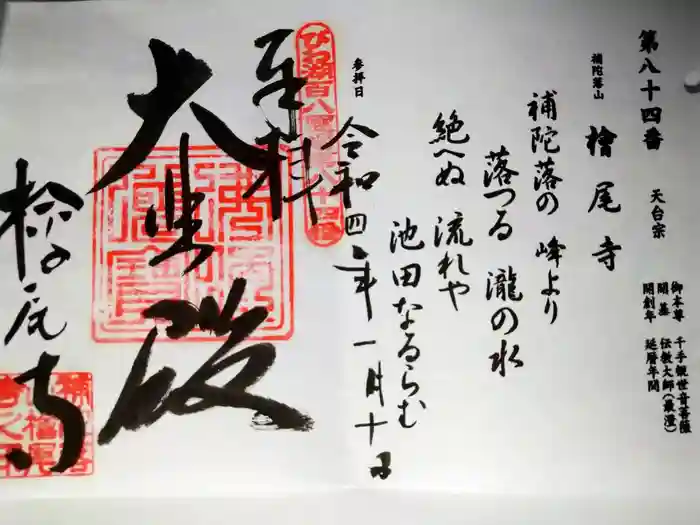 第八十四番
天台宗
補陀落山
檜尾寺
御本尊 千手観世音菩薩
開基 伝教大師(最澄)
開創年 延暦年間
補陀落の 峰より
落つる 瀧の水
絶へぬ 流れや
池田なるらむ
参拝日
令和四年一月十日
奉拝
大悲殿
檜尾寺